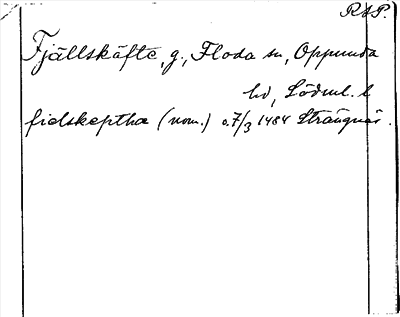 RAP.
Fjällskäfte, g., Floda sn, Oppunda
hd, Södml. l
fielskeptha (nom.) o. 7/3 1484 Strängnäs.